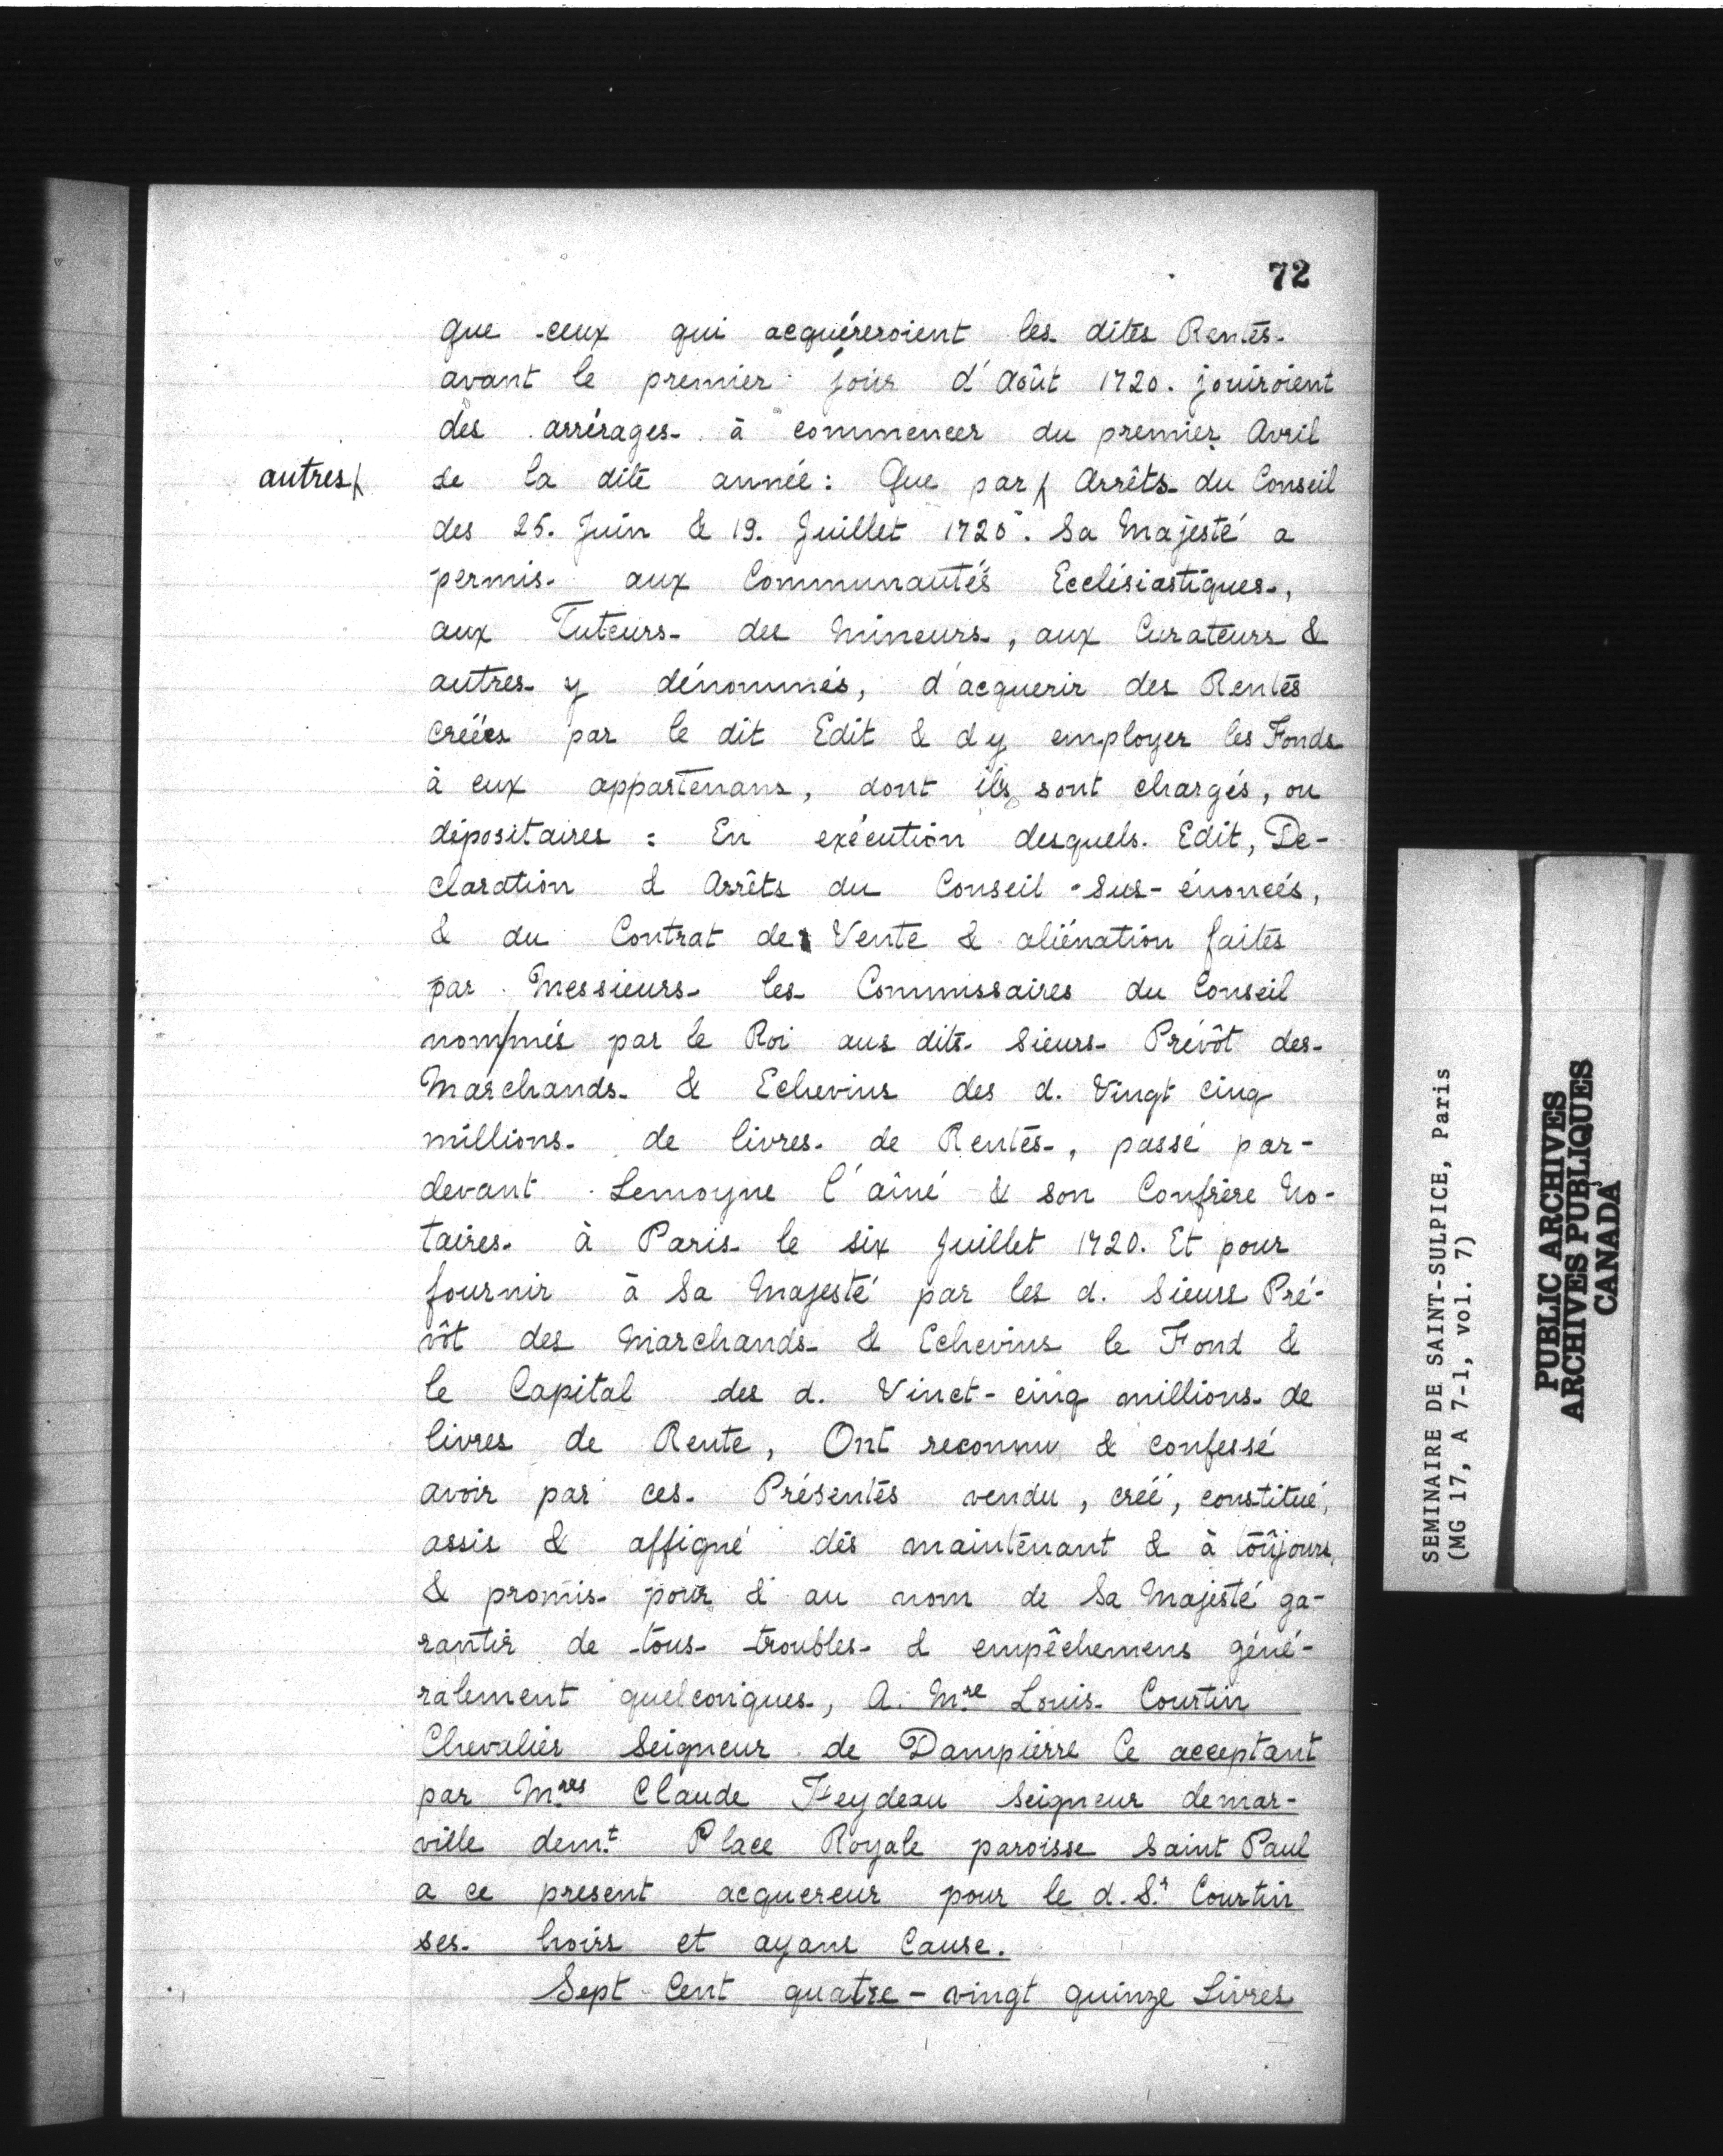 72
que ceux qui acquéreroient les dites Rentes
avant le premier jour d'Août 1720. jouiroient
des arrérages à commencer du premier Avril
autres/ de la dite année: Que par / Arrêts du Conseil
des 25. Juin & 19. Juillet 1720. Sa Majesté a
permis aux Communautés Ecclésiastiques,
aux Tuteurs des Mineurs, aux Curateurs &
autres y dénommés, d'acquerir des Rentes
créées par le dit Edit & d'y employer les Fonds
à eux appartenans, dont ils sont chargés, ou
dépositaires: En exécution desquels Edit, De-
claration & Arrêts du Conseil sus-énoncés,
& du Contrat de Vente & aliénation faites
par Messieurs les Commissaires du Conseil
nommés par le Roi aus dits Sieurs Prévôt des
Marchands & Echevins des d. Vingt cinq
millions de livres de Rentes, passé par-
devant Lemoyne l'aîné & son Confrère No-
taires à Paris le six Juillet 1720. Et pour
fournir à Sa Majesté par les d. Sieurs Pré-
vôt des Marchands & Echevins le Fond &
le Capital des d. Vinct-cinq millions de
livres de Rente, Ont reconnu & confessé
avoir par ces Présentes vendu, créé, constitué,
assis & affigné dès maintenant & à toûjours,
& promis pour & au nom de Sa Majesté ga-
rantir de tous troubles & empêchemens géné-
ralement quelconques, A. Mre Louis Courtin
Chevalier Seigneur de Dampierre Ce acceptant
par Mres Claude Feydeau Seigneur demar-
ville demt Place Royale paroisse Saint Paul
a ce present acquereur pour le d. Sr Courtin
ses hoirs et ayans Cause.
Sept Cent quatre-vingt quinze Livres
SEMINAIRE DE SAINT-SULPICE, Paris
(MG 17, A 7-1, vol. 7)
PUBLIC ARCHIVES
ARCHIVES PUBLIQUES
CANADA